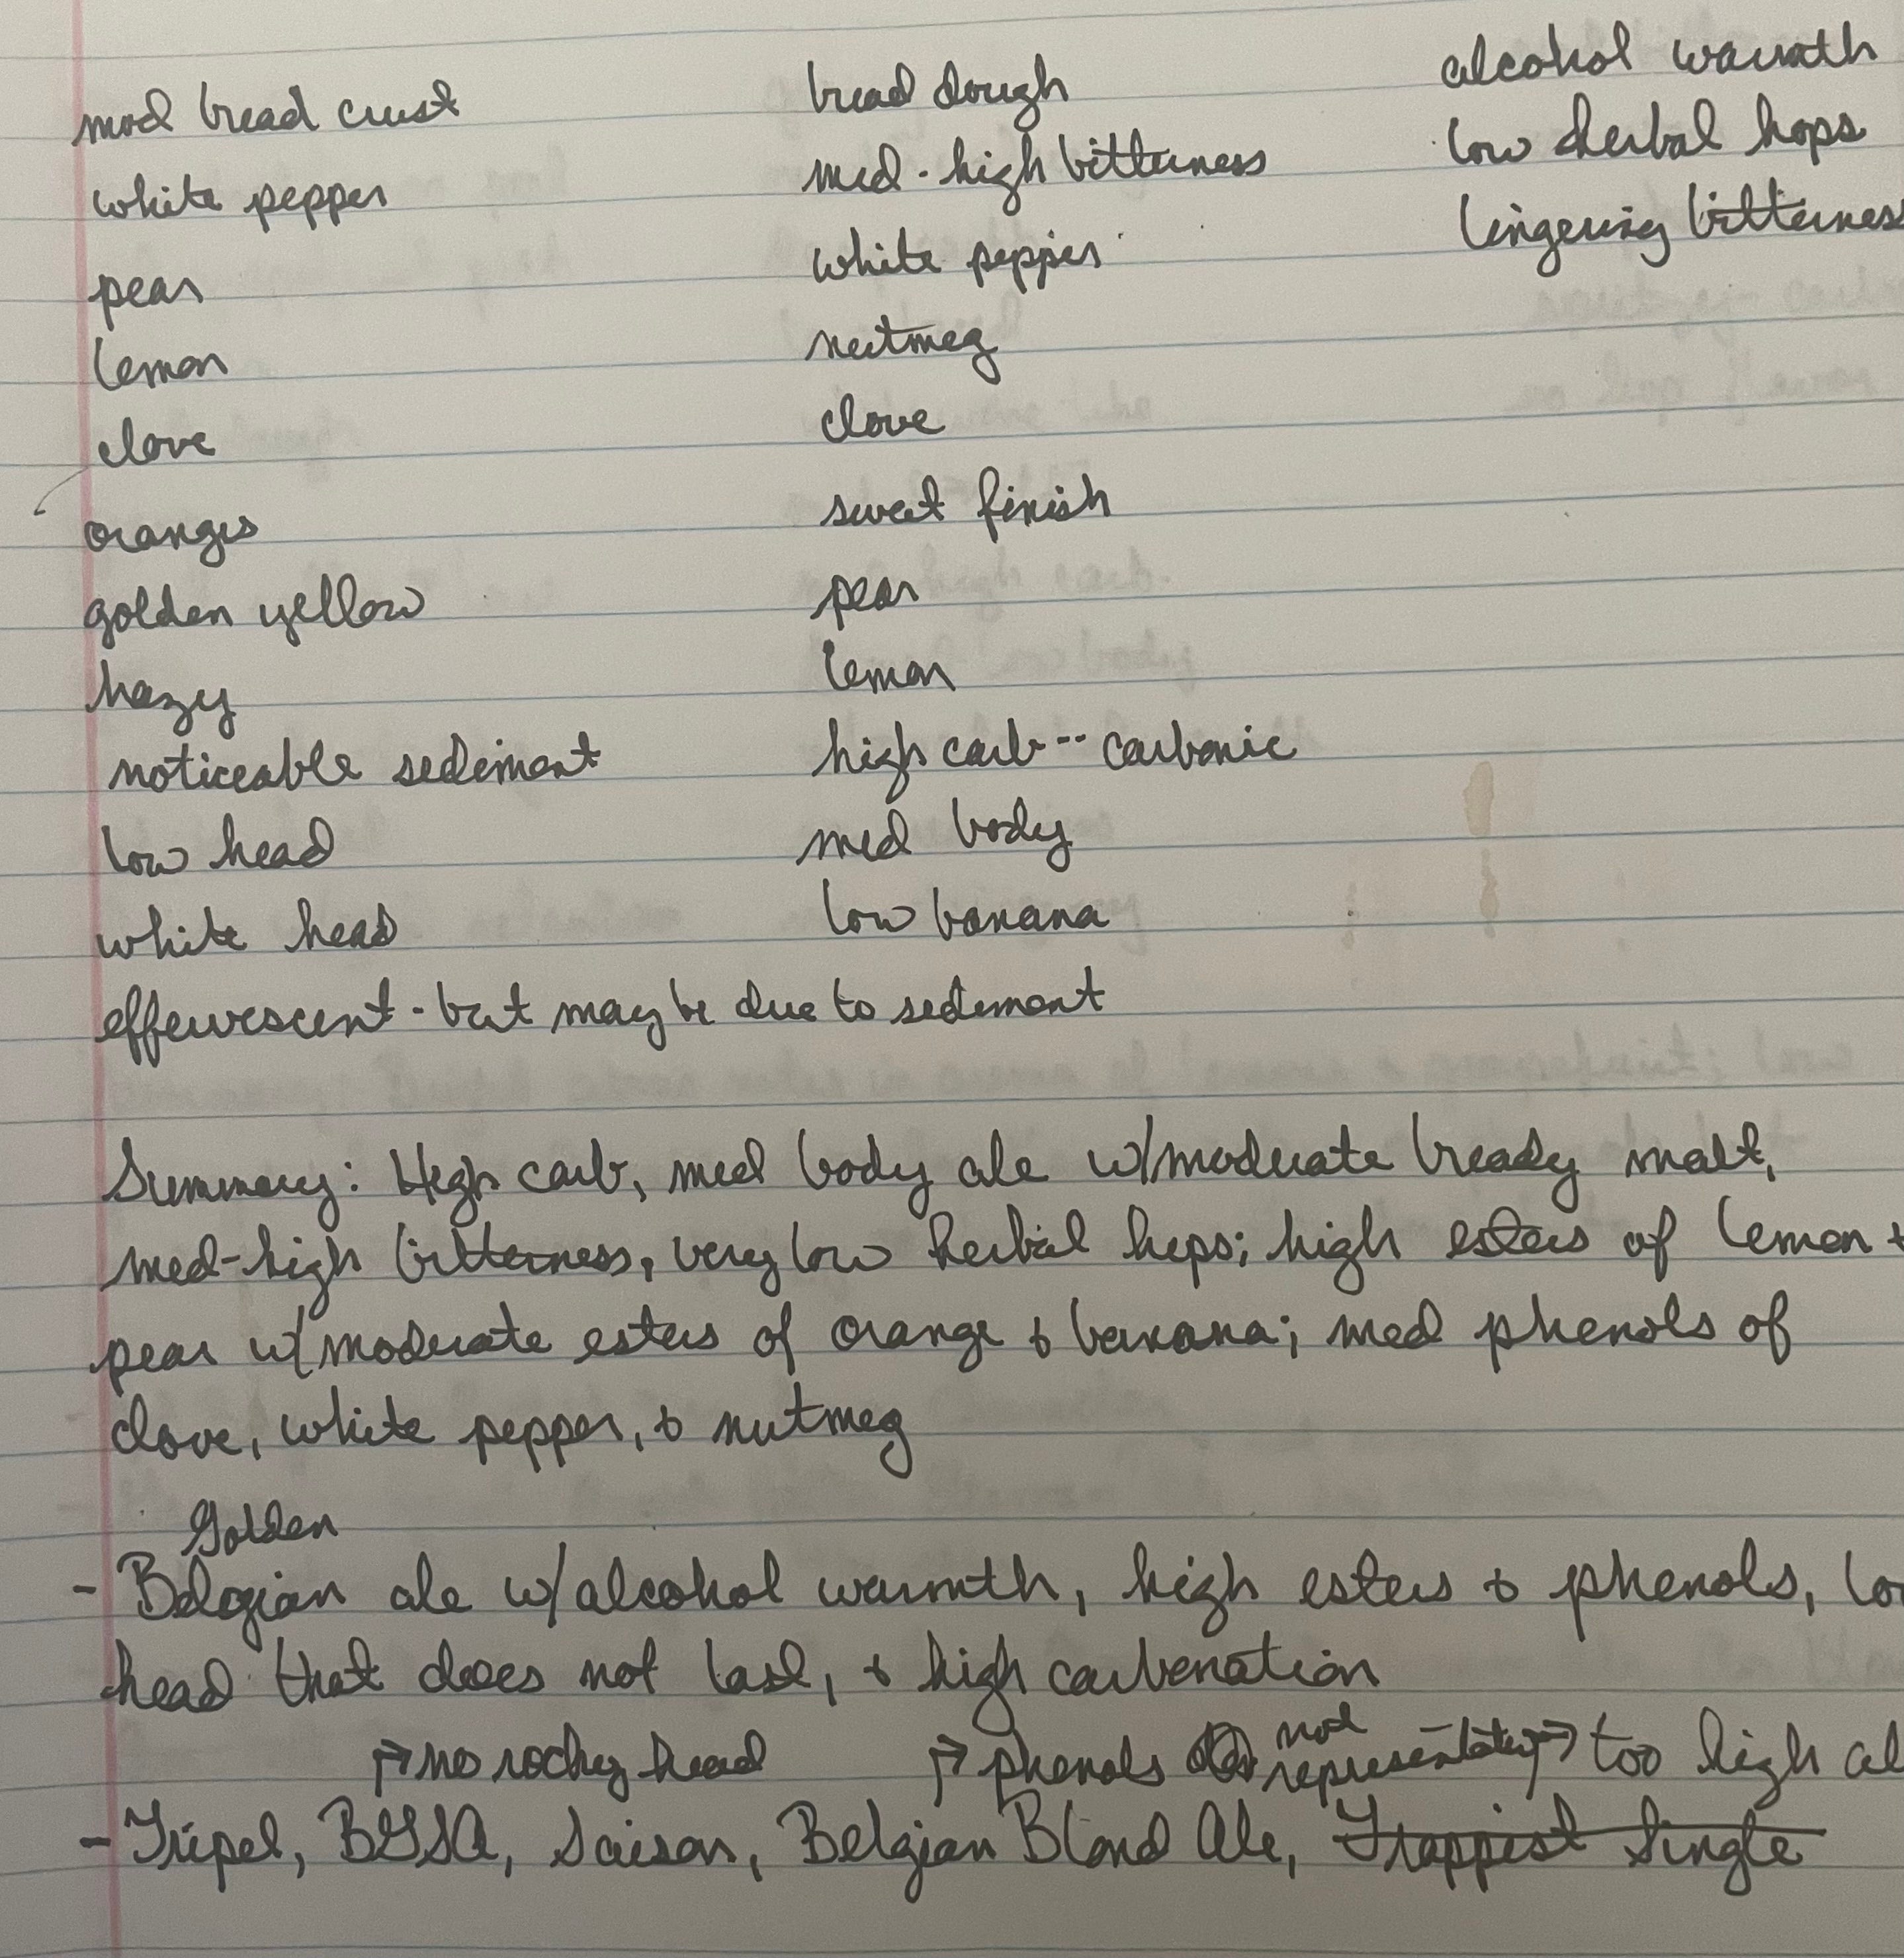 mod bread crust
white pepper
pear
lemon
clove
oranges
golden yellow
hazy
noticeable sediment
low head
white head
effervescent - but may be due to sediment
bread dough
med-high bitterness
white pepper
nutmeg
clove
sweet finish
pear
lemon
high carb -- carbonic
med body
low banana
alcohol warmth
low herbal hops
lingering bitterness
Summary: High carb, med body ale w/moderate bready malt,
med-high bitterness, very low herbal hops; high esters of lemon +
pear w/moderate esters of orange & banana; med phenols of
clove, white pepper, & nutmeg
Golden
- Belgian ale w/alcohol warmth, high esters & phenols, low
head that does not last, & high carbonation
no rocky head phenols not too high
- Tripel, BGSA, Saison, Belgian Blond Ale, Trappist Single